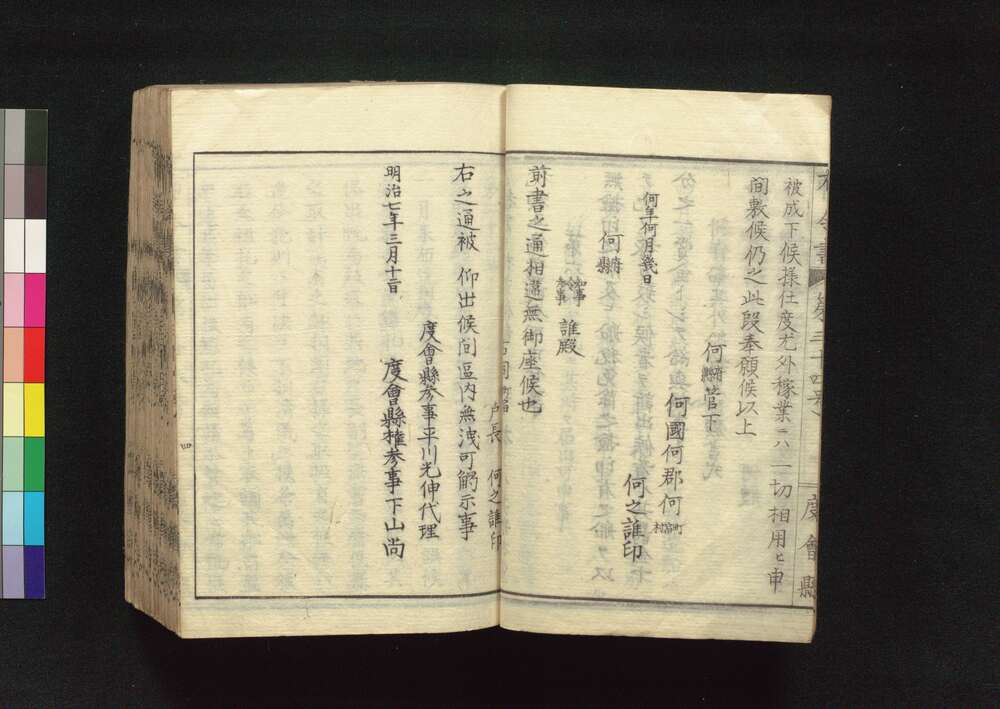 被成下候様仕度尤外稼業ニハ一切相用ヒ申
間敷候仍之此段奉願候以上
何府縣管下
何國何郡何町宿村
何年何月幾日
何之誰印
何府縣
知事
令
参事
誰殿
前書之通相違無御座候也
戸長 何之誰印
右之通被 仰出候間區内無洩可觸示事
度會縣参事平川光伸代理
明治七年三月十二日 度會縣権参事下山尚
度會縣
四